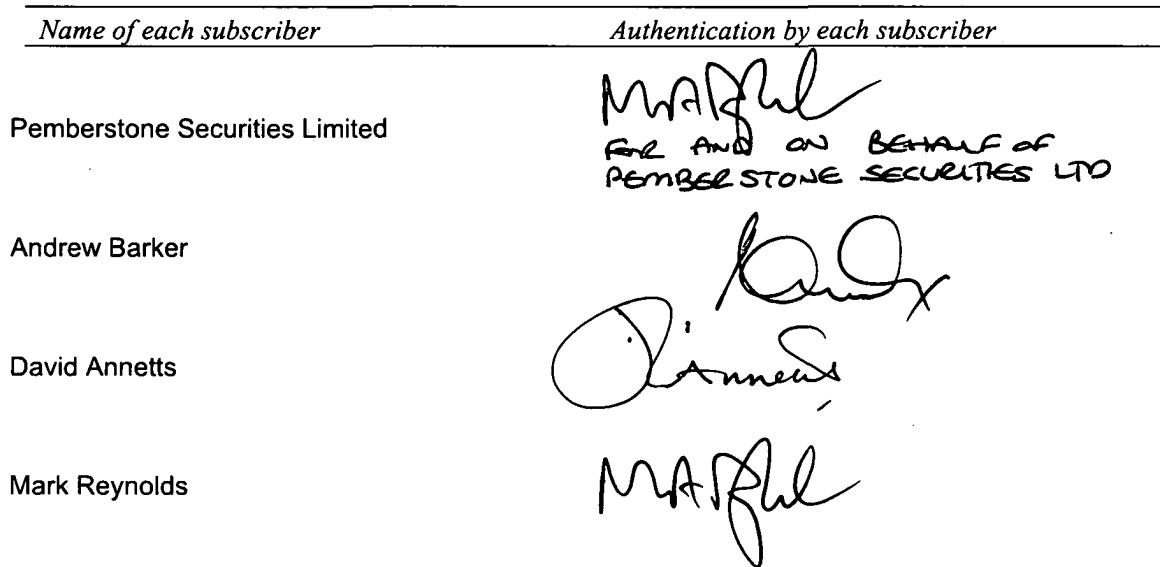 Name of each subscriber Authentication by each subscriber
Pemberstone Securities Limited
FOR AND ON BEHALF OF
PEMBERSTONE SECURITIES LTD
Andrew Barker
David Annetts
Mark Reynolds